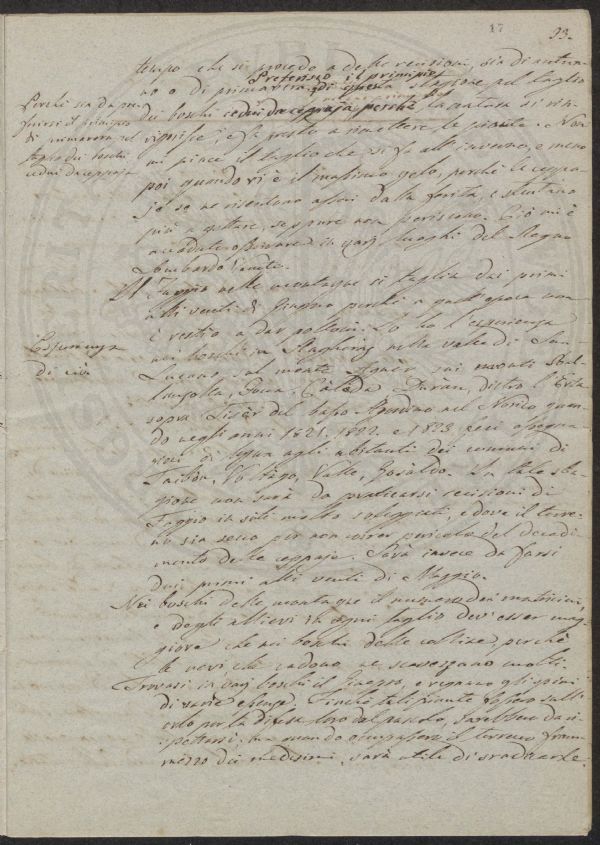 93.
tempo che si procede a dette recisioni, sia di autun-
no o di primavera. Preferisco il principio
di questa stagione pel taglio
dei boschi cedui da ceppaja perchè la natura si rin-
vigorisce, e fa presto a rimettere le piante. Non
mi piace il taglio che si fa all'inverno, e meno
poi quando vi è il massimo gelo, perchè le ceppa-
je se ne risentono assai dalla ferita, e stentano
più a gettare, seppure non periscono. Ciò mi è
accaduto osservare in varj luoghi del Regno
Lombardo Veneto.
Perchè sia da pre-
ferirsi il principio
di primavera nel
taglio dei boschi
cedui da ceppaja
Il Faggio nelle montagne si taglia dai primi
alli venti di Giugno perchè a quell'epoca non
è restio a dar polloni. Io ho l'esperienza
nei boschi in nella valle di San
Lucano, al monte Agnèr, sui monti
Duràn, dietro l'
sopra Lisèr del basso Agordino nel Veneto, quan-
do negli anni 1821, 1822 e 1823, feci assegna-
zioni di legna agli abitanti dei comuni di
Taibon, Voltago, Valle, Rosaldo. In tale sta-
gione non sarà da praticarsi recisioni di
Faggio in siti molto soleggiati, e dove il terre-
no sia secco per non correr pericolo del decadi-
mento delle ceppaje. Sarà invece da farsi
dai primi alli venti di Maggio.
Esperienza
di ciò
Nei boschi delle montagne il numero dei matricini,
e degli allievi in ogni taglio dev'esser mag-
giore che nei boschi delle colline, perchè
le nevi che cadono, ne scavezzano molti.
Trovasi in varj boschi il Ginepro, e vegnano gli spini
di varie specie. Finchè tali piante fossero sull'
orlo per la difesa loro dal pascolo, sarebbero da ri-
spettarsi, ma quando occupassero il terreno fram-
mezzo dei medesimi, sarà utile di sradicarle.